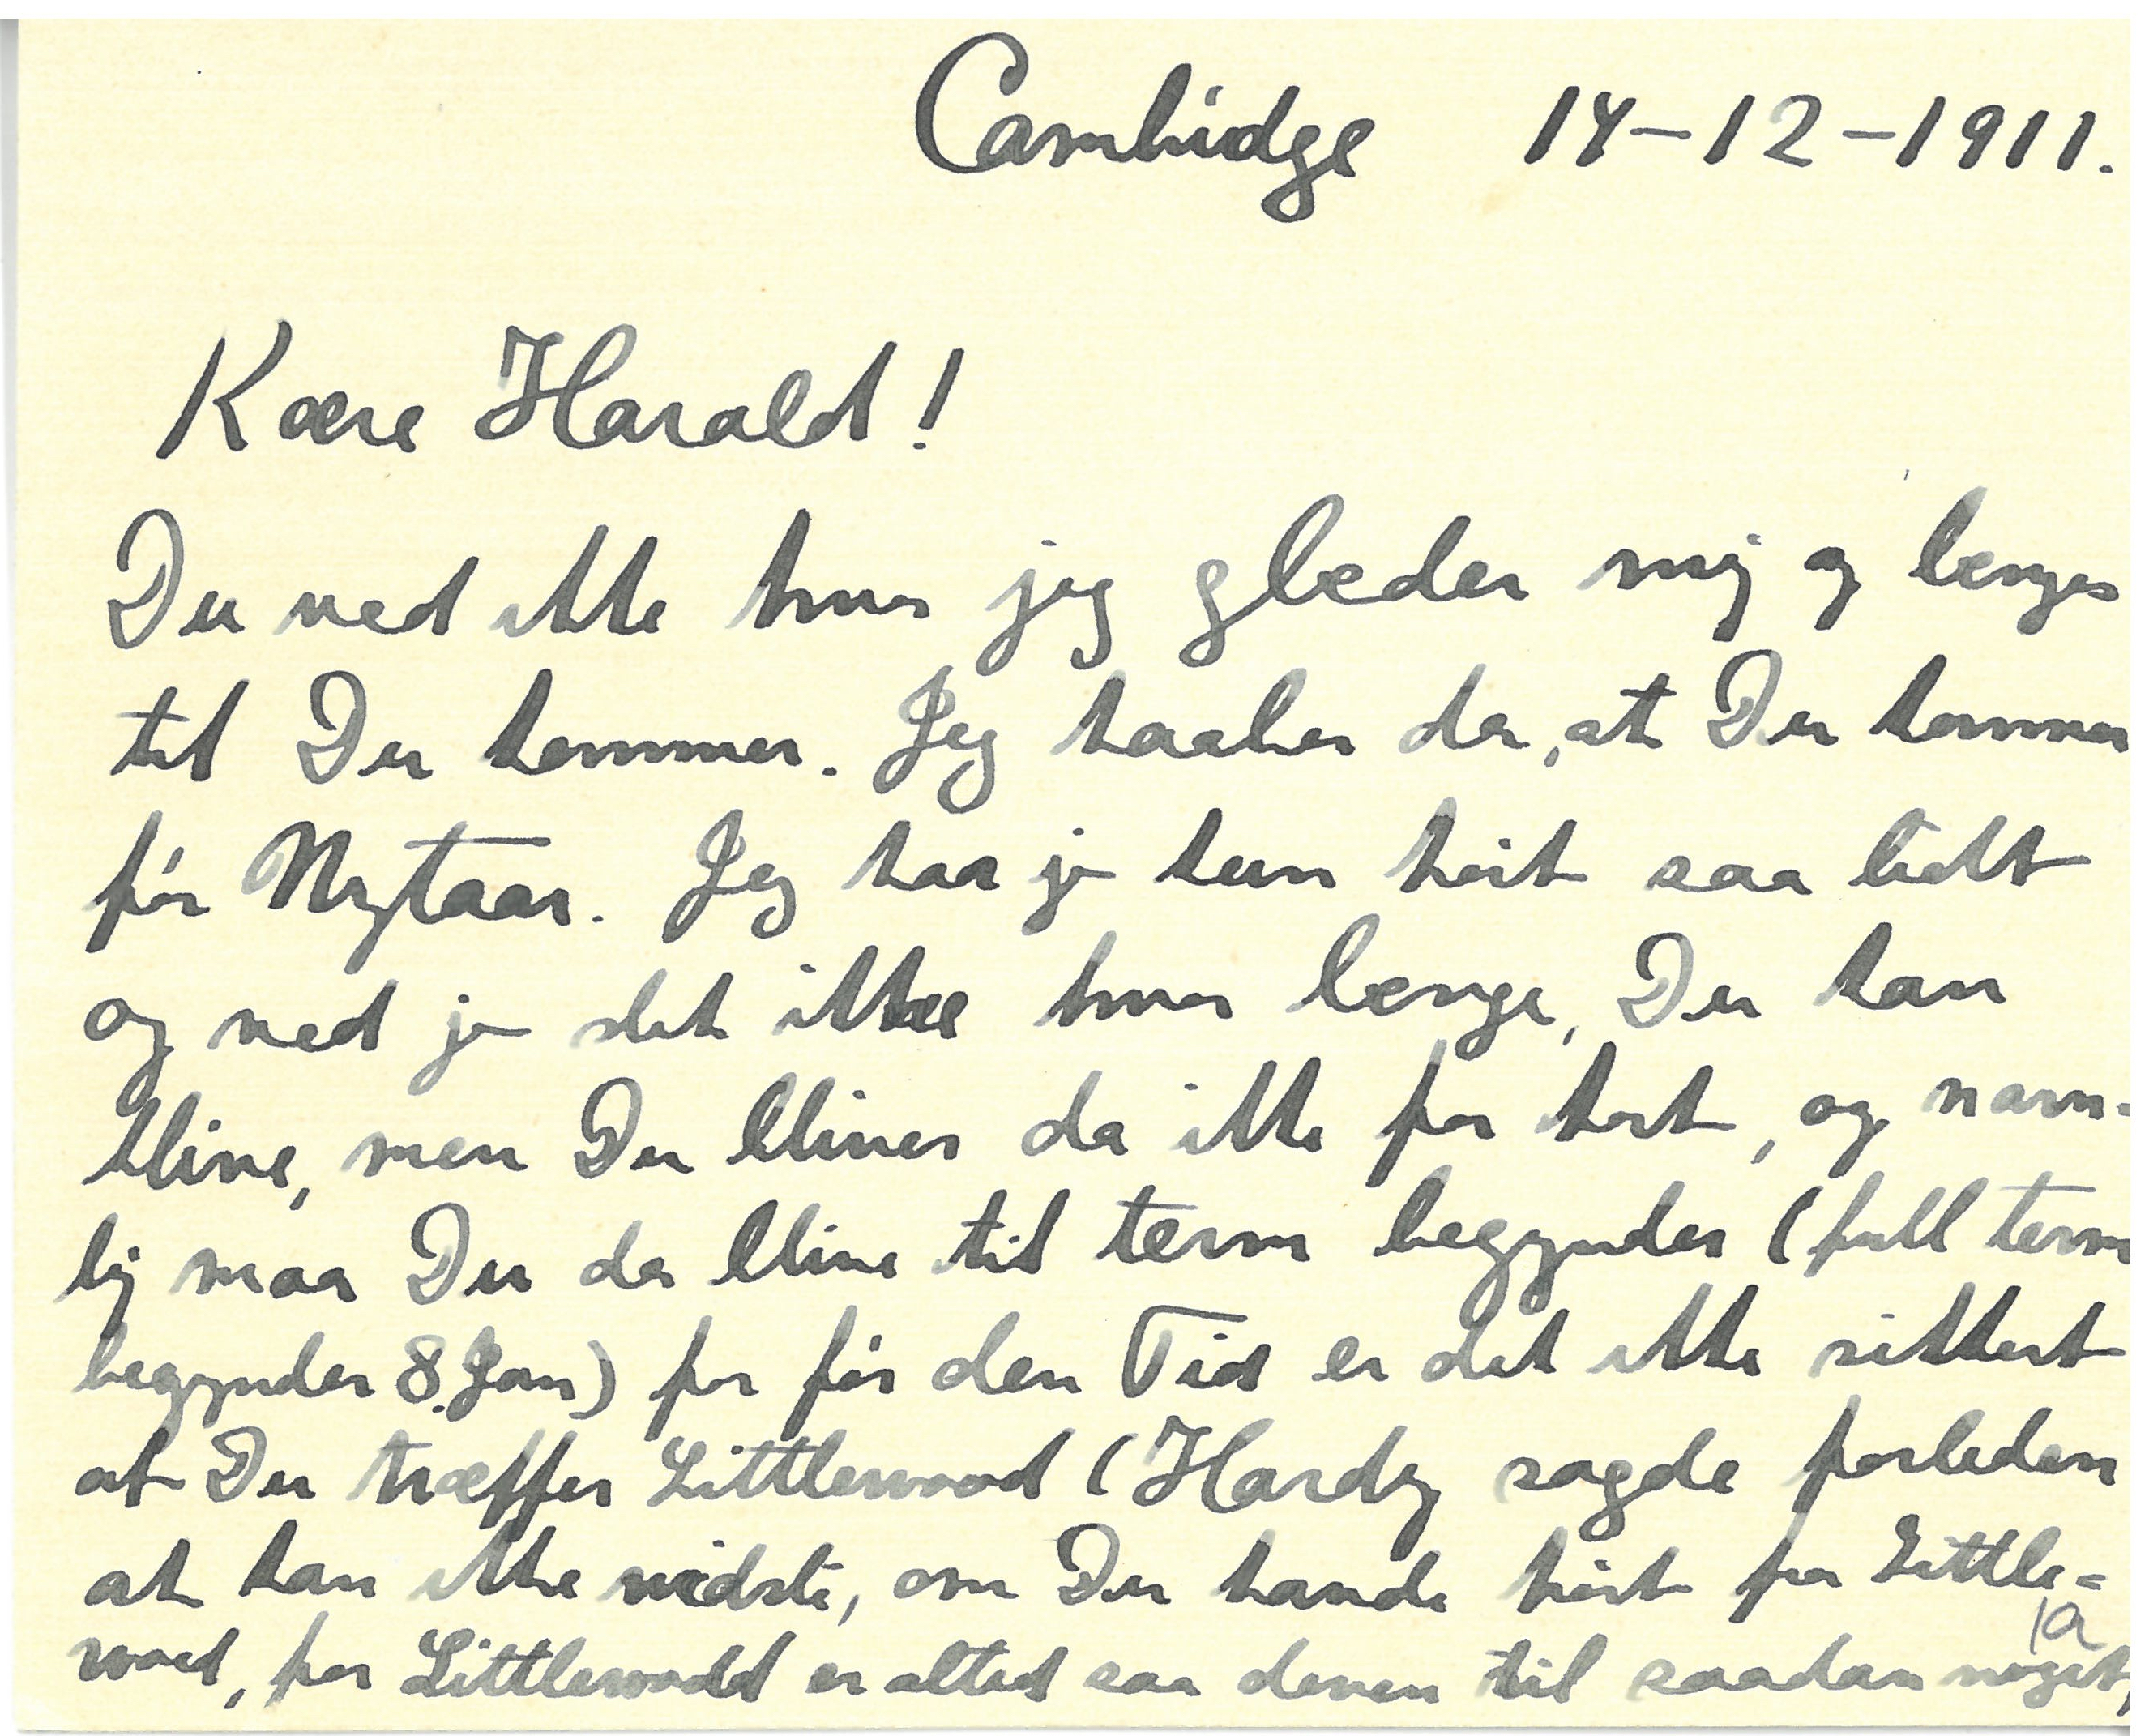 Cambridge 14-12-1911.
Kære Harald!
Du ved ikke hvor jeg glæder mig og længes
til Du kommer. Jeg haaber da, at Du kommer
før Nytaar. Jeg har jo kun hørt saa lidt
og ved jo slet ikke hvor længe, Du kan
blive, men Du bliver da ikke for kort, og navn-
lig maa Du da blive til term begynder (full term
begynder 8. Jan) for før den Tid er det ikke sikkert
at Du træffer Littlewood (Hardy sagde forleden
at han ikke vidste, om Du havde hørt fra Little=
wood, for Littlewood er altid saa doven til saadan noget,